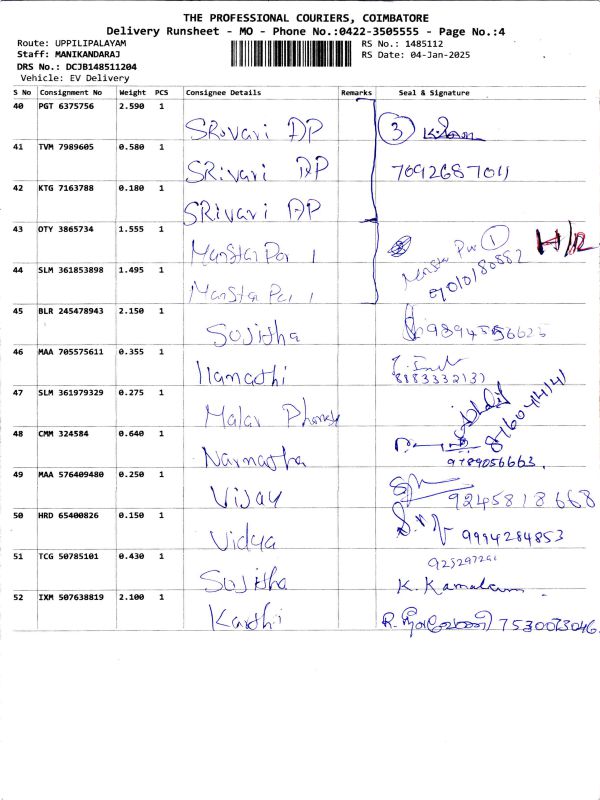 THE PROFESSIONAL COURIERS, COIMBATORE
Delivery Runsheet - MO - Phone No.:0422-3505555 - Page No.:4
Route: UPPILIPALAYAM RS No.: 1485112
Staff: MANIKANDARAJ RS Date: 04-Jan-2025
DRS No.: DCJB148511204
Vehicle: EV Delivery
S No Consignment No Weight PCS Consignee Details Remarks Seal & Signature
40 PGT 6375756 2.590 1 SRivari DP 3
41 TVM 7989605 0.580 1 SRivari DP 7092687011
42 KTG 7163788 0.180 1 SRivari DP
43 OTY 3865734 1.555 1 ManStar Par 1 1
44 SLM 361853898 1.495 1 ManStar Par 1
45 BLR 245478943 2.150 1 Sujitha
46 MAA 705575611 0.355 1 Ilamathi
47 SLM 361979329 0.275 1 Malar
48 CMM 324584 0.640 1 Namratha 9789056663.
49 MAA 576409480 0.250 1 Vijay 9245818668
50 HRD 65400826 0.150 1 Vidya 9994284853
51 TCG 50785101 0.430 1 Sujitha K. Kamalam
52 IXM 507638819 2.100 1 Karthi